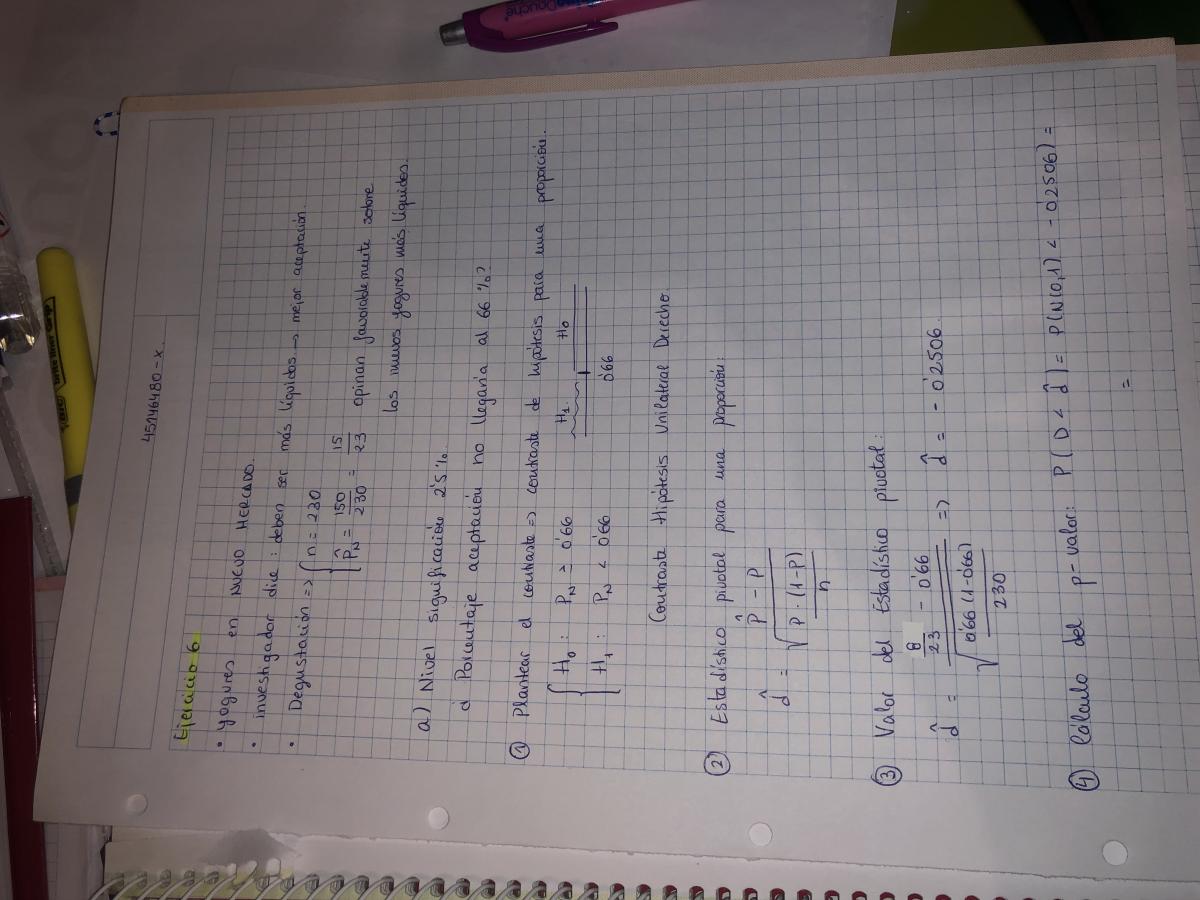 45146480-X
Ejercicio 6
• yogures en NUEVO MERCADO.
• investigador dice: deben ser más líquidos → mejor aceptación.
• Degustación => { n = 230
P̂_N = 150/230 = 15/23 opinan favorablemente sobre
los nuevos yogures más líquidos.
a) Nivel significación 2'5%.
d Porcentaje aceptación no llegaría al 66%?
① Plantear el contraste => contraste de hipótesis para una proporción.
{ H₀: P_N ≥ 0'66
H₁: P_N < 0'66
H₁ H₀
0'66
Contraste Hipótesis Unilateral Derecho.
② Estadístico pivotal para una proporción:
d̂ = (P̂ - P) / √(P·(1-P)/n)
③ Valor del Estadístico pivotal:
d̂ = (8/23 - 0'66) / √(0'66(1-0'66)/230) => d̂ = -0'2506.
④ Cálculo del p-valor: P(D < d̂) = P(N(0,1) < -0'2506) =
=